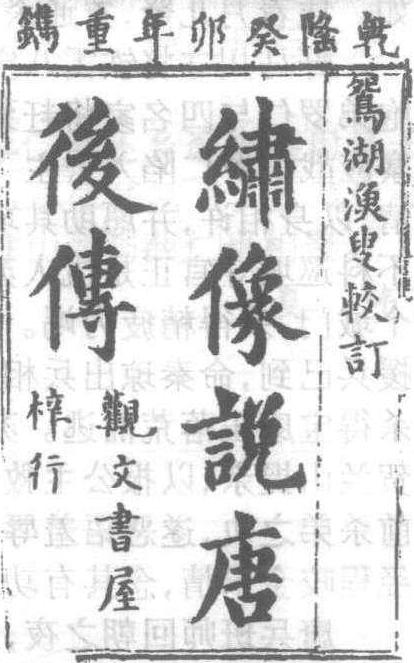 乾隆癸卯年重鐫
鴛湖漁叟較訂
繡像說唐
後傳
觀文書屋
梓行